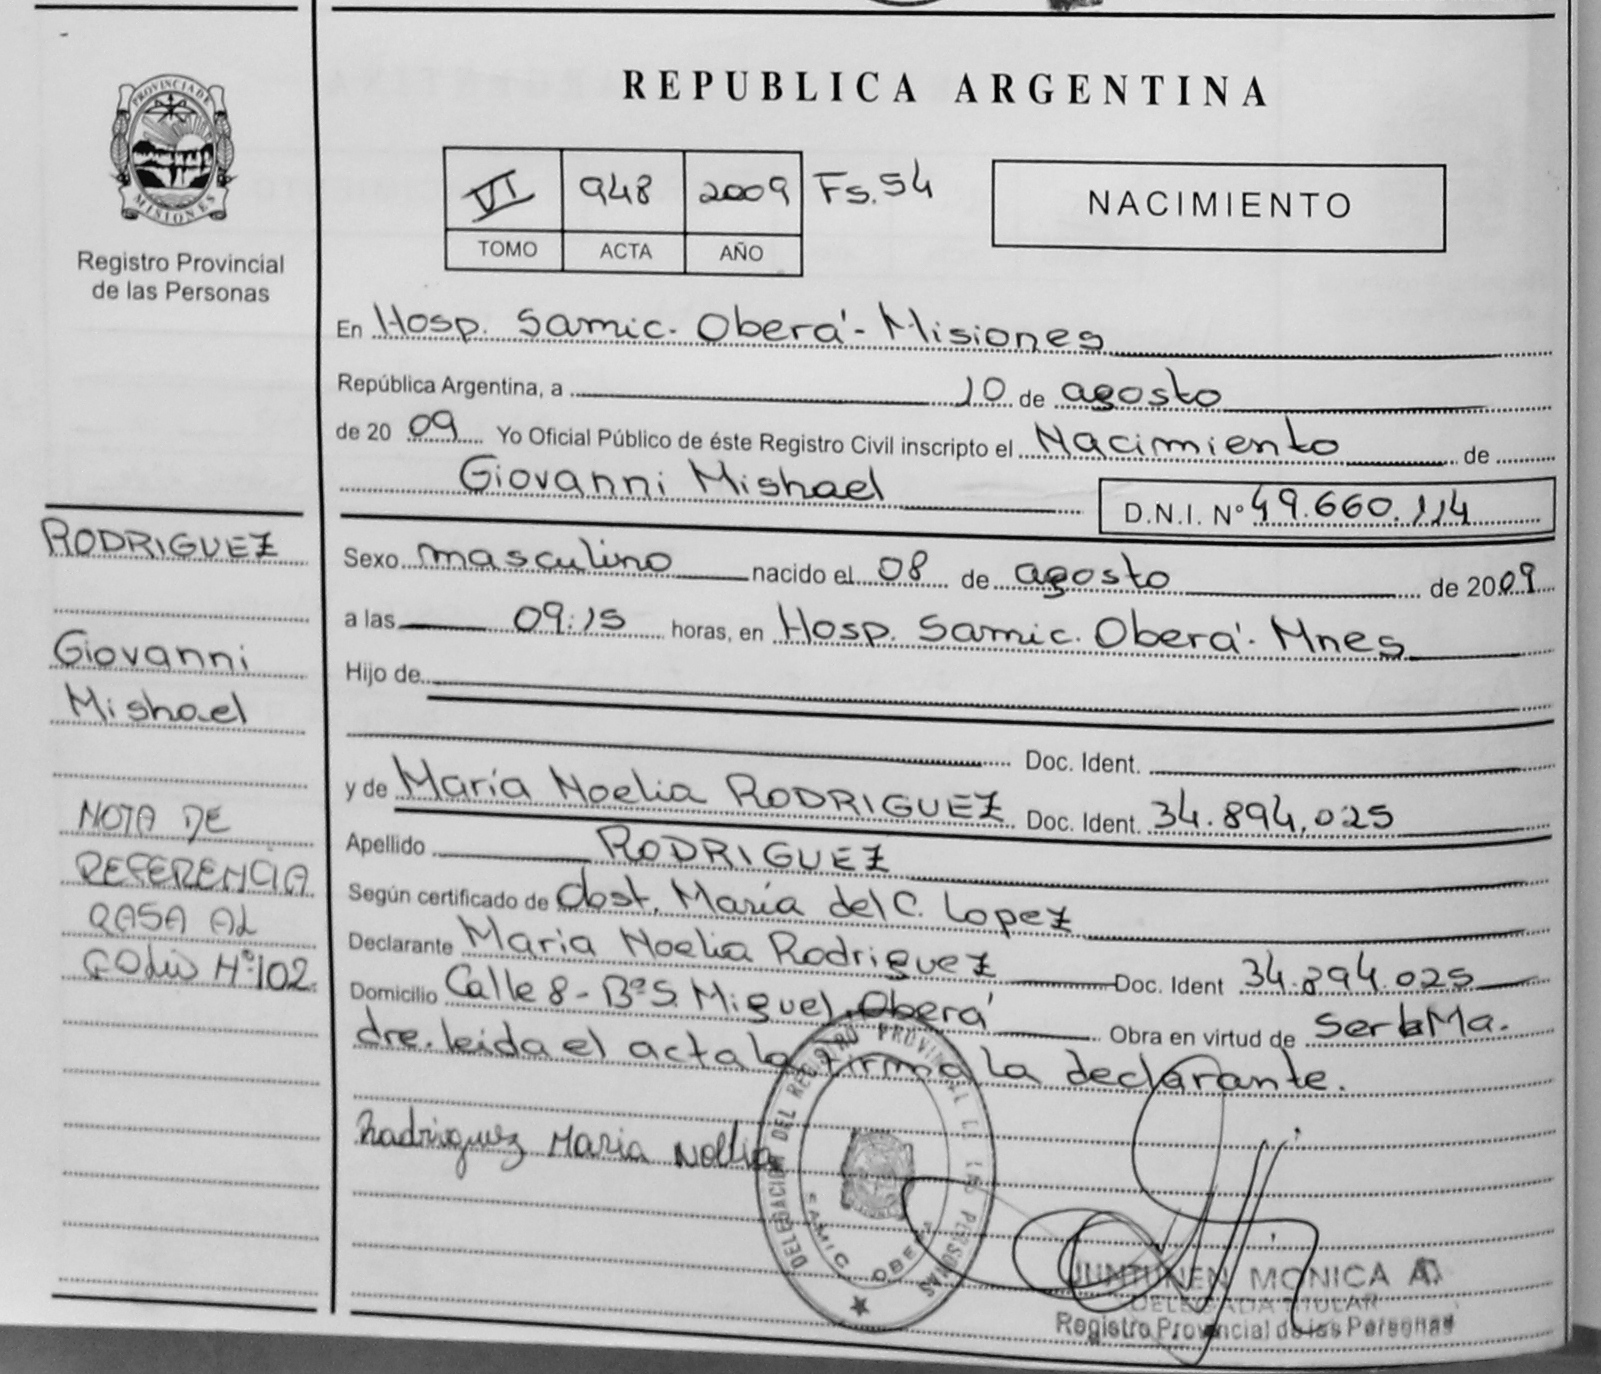 PROVINCIA DE
MISIONES
Registro Provincial
de las Personas
REPUBLICA ARGENTINA
VI 948 2009 Fs. 54
TOMO ACTA AÑO
NACIMIENTO
En Hosp. Samic. Oberá - Misiones
República Argentina, a 10 de agosto
de 2009 Yo Oficial Público de éste Registro Civil inscripto el Nacimiento de
Giovanni Mishael D.N.I. Nº 49.660.114
Sexo masculino nacido el 08 de agosto de 2009
a las 09:15 horas, en Hosp. Samic. Oberá. Mnes
Hijo de
Doc. Ident.
y de María Noelia RODRIGUEZ Doc. Ident. 34.894.025
Apellido RODRIGUEZ
Según certificado de Obst. María del C. Lopez
Declarante María Noelia Rodriguez Doc. Ident 34.894.025
Domicilio Calle 8 - Bº S. Miguel. Oberá Obra en virtud de Ser la Ma.
dre. leida el acta la firma la declarante.
Rodriguez Maria Noelia
RODRIGUEZ
Giovanni
Mishael
NOTA DE
REFERENCIA
PASA AL
FOLIO Nº 102
DELEGACION DEL REGISTRO PROVINCIAL DE LAS PERSONAS
SAMIC OBERA
JUNTUNEN MONICA A.
DELEGADA TITULAR
Registro Provincial de las Personas